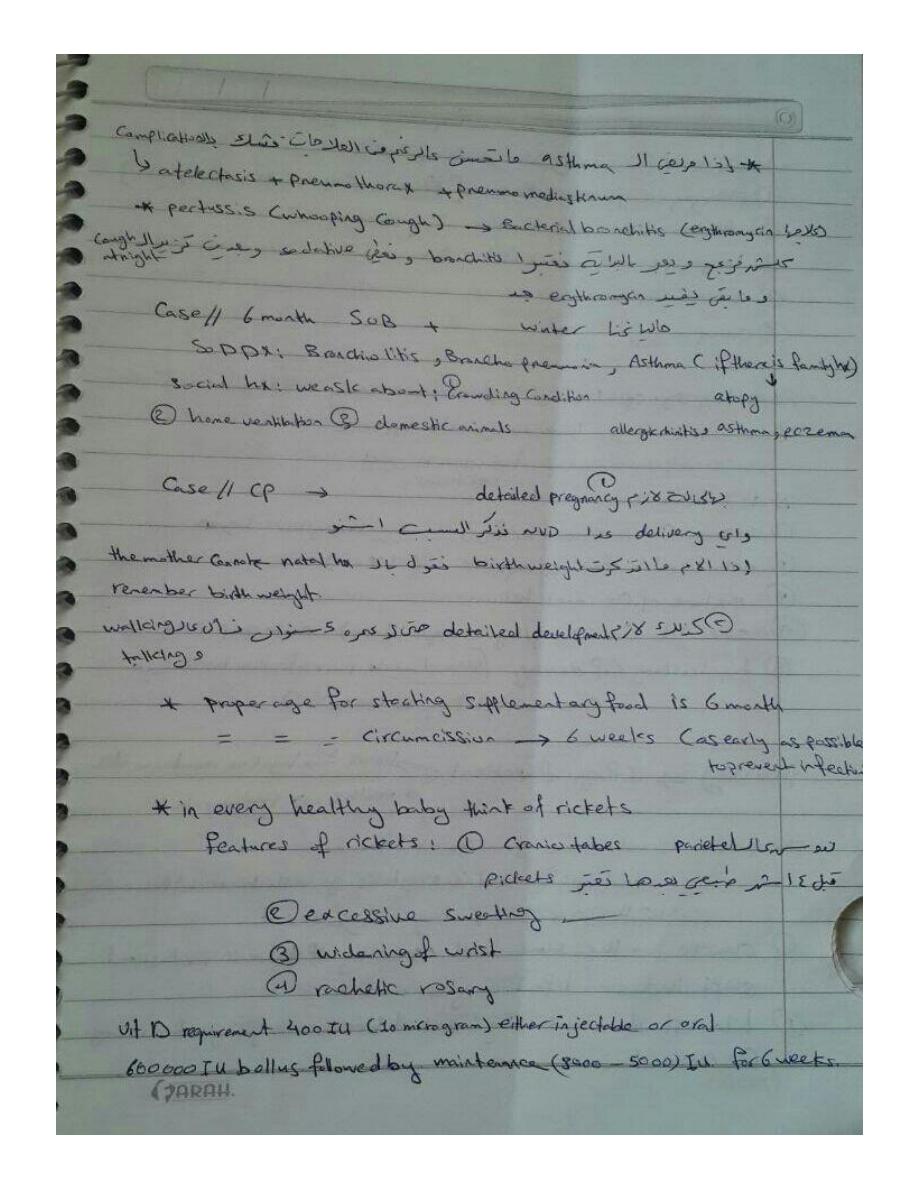 * إذا مريض الـ asthma ما تحسن عالرغم من العلاجات فنشك بالـ Complications
↳ atelectasis + pneumothorax + pneumomediastinum
* pertussis (whooping Cough) → Bacterial bronchitis (erythromycin علاجها)
كلش مزعج ويمر بالبداية نعتبرها bronchitis و نعطي sedative وبعدين تزيد الـ Cough at night
وما يبقى يفيد erythromycin
Case // 6 month SOB + winter حاليا عنا
So DDX: Bronchiolitis, Broncho pneumonia, Asthma (if there is family hx)
Social hx: we ask about: ① Crowding Condition atopy
② home ventilation ③ domestic animals allergic rhinitis, asthma, eczema
Case // CP → ① detailed pregnancy لازم
واي delivery عدا NVD نذكر السبب اشنو
إذا الام ما اتذكرت birth weight نقول بالـ natal hx the mother cannote
remember birth weight.
② كذلك لازم detailed development حتى لو عمره 5 سنوات نسأل عالـ walking
و talking
* proper age for starting supplementary food is 6 month
= = = Circumcission → 6 weeks (as early as possible
to prevent infection
* in every healthy baby think of rickets
features of rickets: ① Cranio tabes parietal
قبل ٤ اشهر طبيعي بعدها تعتبر rickets
② excessive sweating
③ widening of wrist
④ rachetic rosary
Vit D requirement 400 IU (10 microgram) either injectable or oral
600000 IU bollus followed by maintenance (3000 - 5000) IU for 6 weeks.
FARAH.